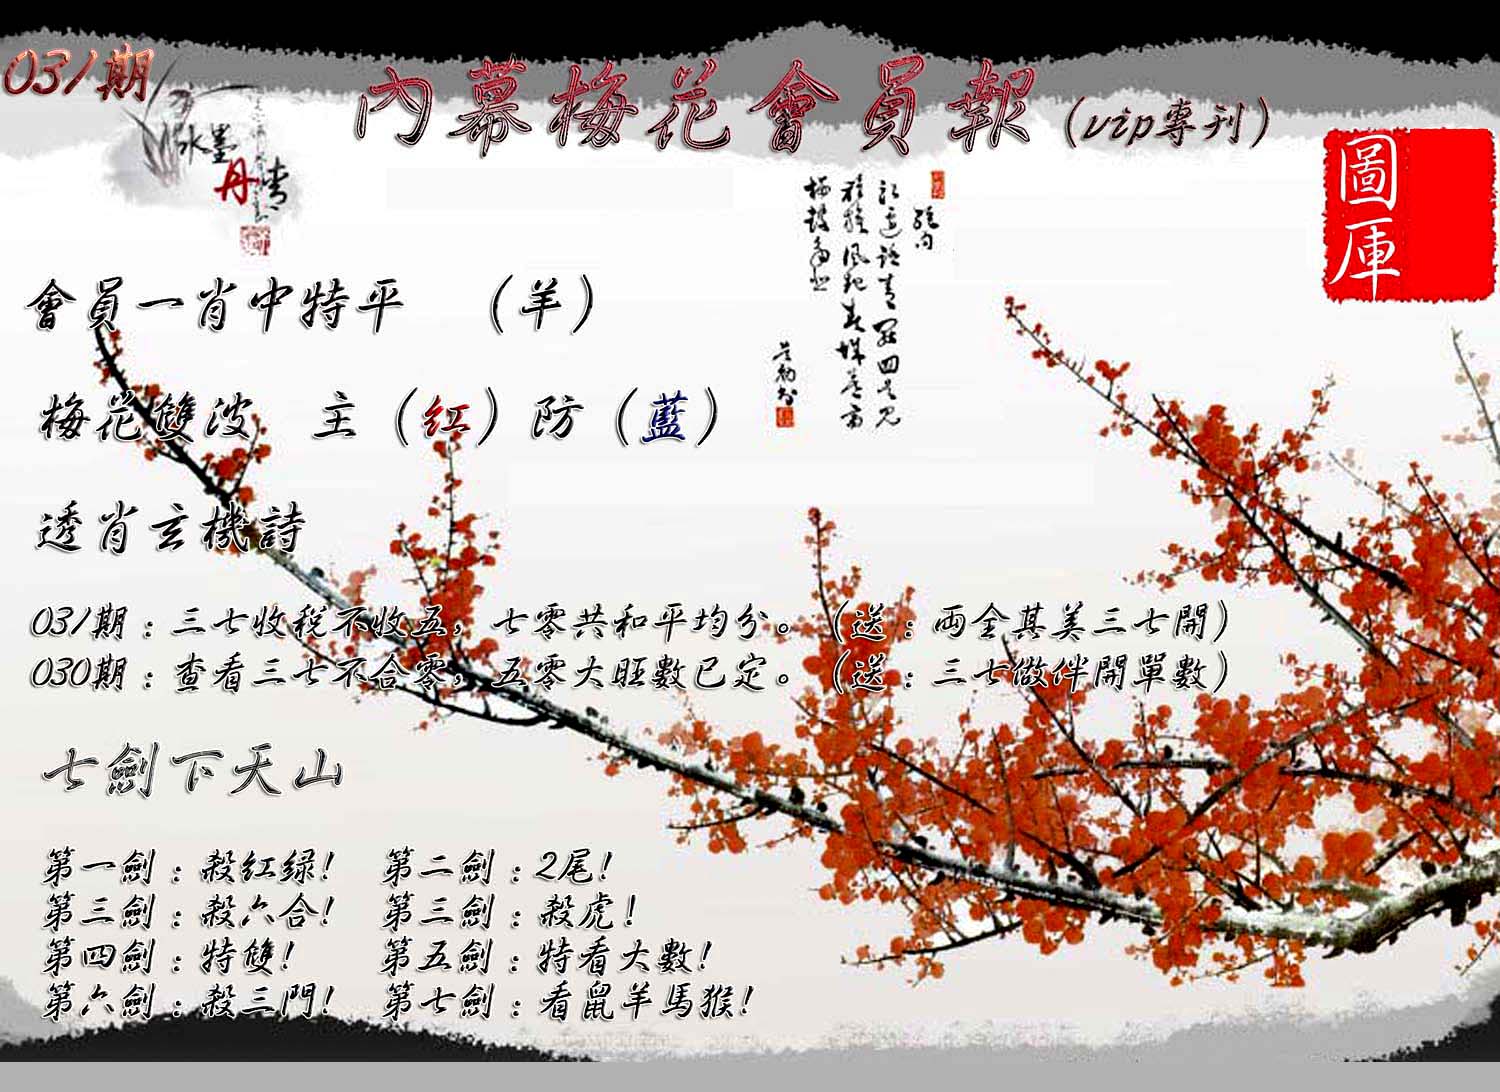 031期
內幕梅花會員報(vip專刊)
水墨
丹青
圖庫
會員一肖中特平 （羊）
梅花雙波 主（紅）防（藍）
透肖玄機詩
031期：三七收税不收五，七零共和平均分。（送：両全其美三七開）
030期：查看三七不合零，五零大旺數已定。（送：三七做伴開單數）
七劍下天山
第一劍：殺紅绿! 第二劍：2尾!
第三劍：殺六合! 第三劍：殺虎!
第四劍：特雙! 第五劍：特看大數!
第六劍：殺三門! 第七劍：看鼠羊馬猴!